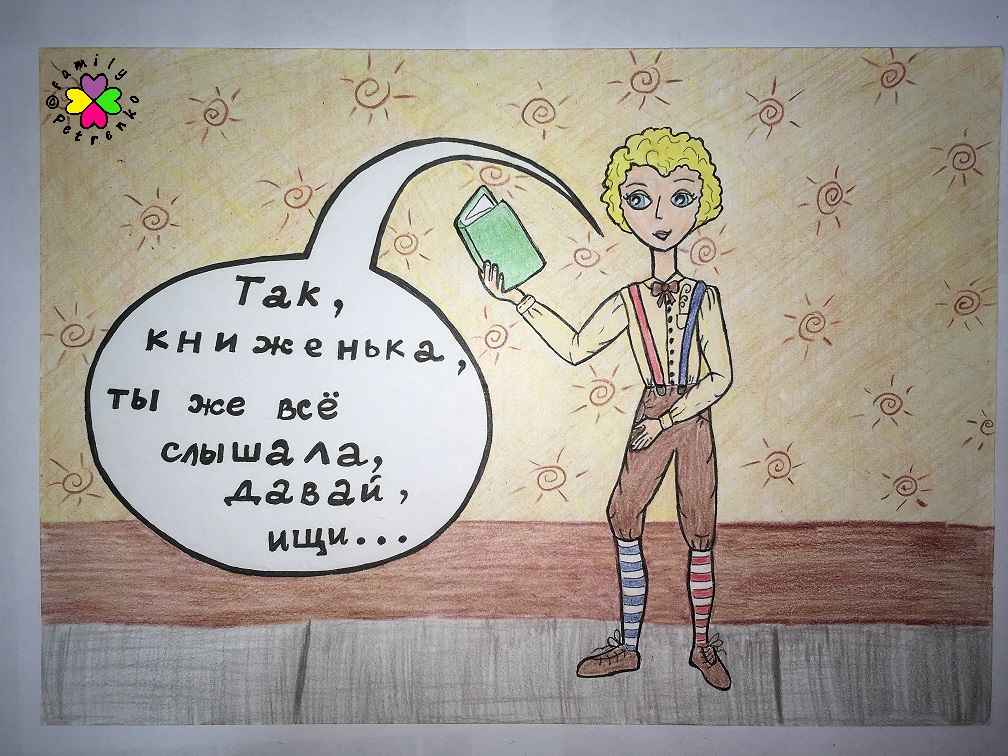 © Family
Petrenko
Так,
книженька,
ты же всё
слышала,
давай,
ищи...